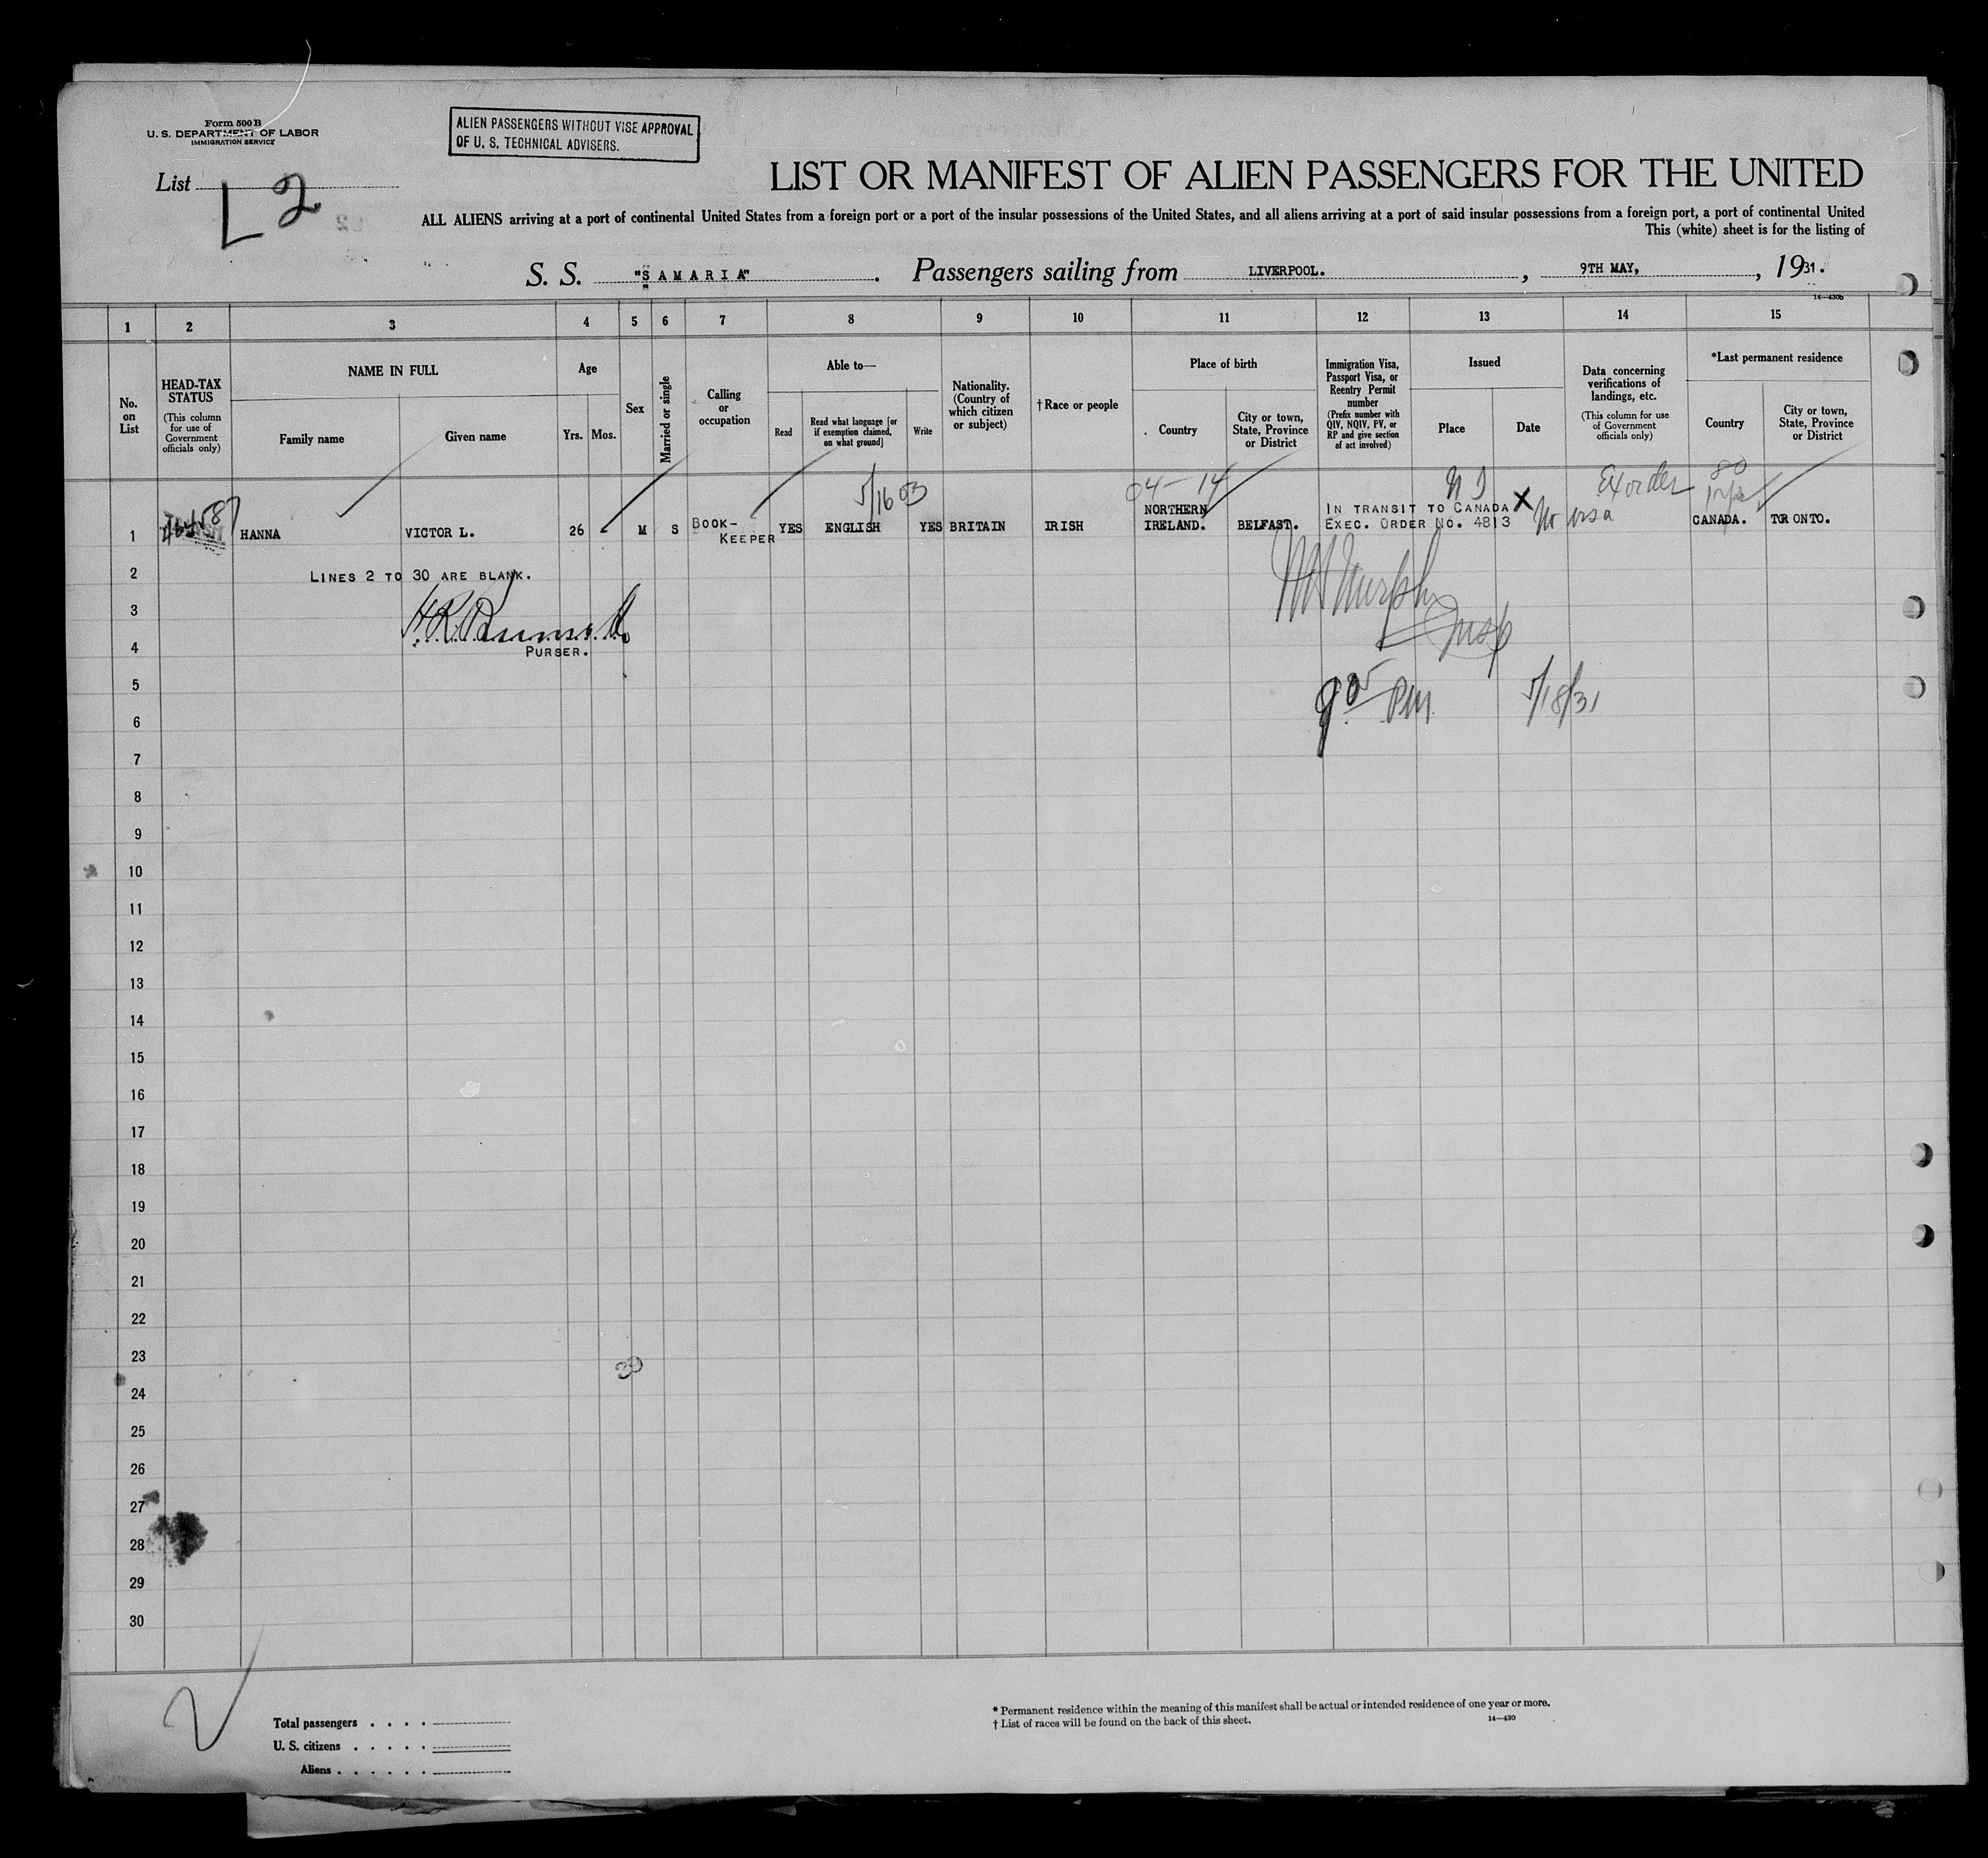 Form 500 B
U. S. DEPARTMENT OF LABOR
IMMIGRATION SERVICE
ALIEN PASSENGERS WITHOUT VISE APPROVAL
OF U. S. TECHNICAL ADVISERS.
List
L 2
LIST OR MANIFEST OF ALIEN PASSENGERS FOR THE UNITED
ALL ALIENS arriving at a port of continental United States from a foreign port or a port of the insular possessions of the United States, and all aliens arriving at a port of said insular possessions from a foreign port, a port of continental United
This (white) sheet is for the listing of
S. S. "SAMARIA". Passengers sailing from LIVERPOOL. , 9TH MAY, , 1931.
14—430b
1 2 3 4 5 6 7 8 9 10 11 12 13 14 15
No. on List
HEAD-TAX STATUS
(This column for use of Government officials only)
NAME IN FULL
Family name
Given name
Age
Yrs. Mos.
Sex
Married or single
Calling or occupation
Able to—
Read
Read what language [or if exemption claimed, on what ground]
Write
Nationality. (Country of which citizen or subject)
† Race or people
Place of birth
Country
City or town, State, Province or District
Immigration Visa, Passport Visa, or Reentry Permit number
(Prefix number with QIV, NQIV, PV, or RP and give section of act involved)
Issued
Place
Date
Data concerning verifications of landings, etc.
(This column for use of Government officials only)
*Last permanent residence
Country
City or town, State, Province or District
5/16 03
04-14
Ex order
80
1 HANNA VICTOR L. 26 M S BOOK-KEEPER YES ENGLISH YES BRITAIN IRISH NORTHERN IRELAND. BELFAST. IN TRANSIT TO CANADA X EXEC. ORDER NO. 4813 No visa CANADA. TORONTO.
2 LINES 2 TO 30 ARE BLANK.
3
4 PURSER.
Murphy
Insp
5
905 PM. 5/18/31
6
7
8
9
10
11
12
13
14
15
16
17
18
19
20
21
22
23
24
25
26
27
28
29
30
Total passengers . . . .
U. S. citizens . . . . .
Aliens . . . . . .
* Permanent residence within the meaning of this manifest shall be actual or intended residence of one year or more.
† List of races will be found on the back of this sheet.
14—430